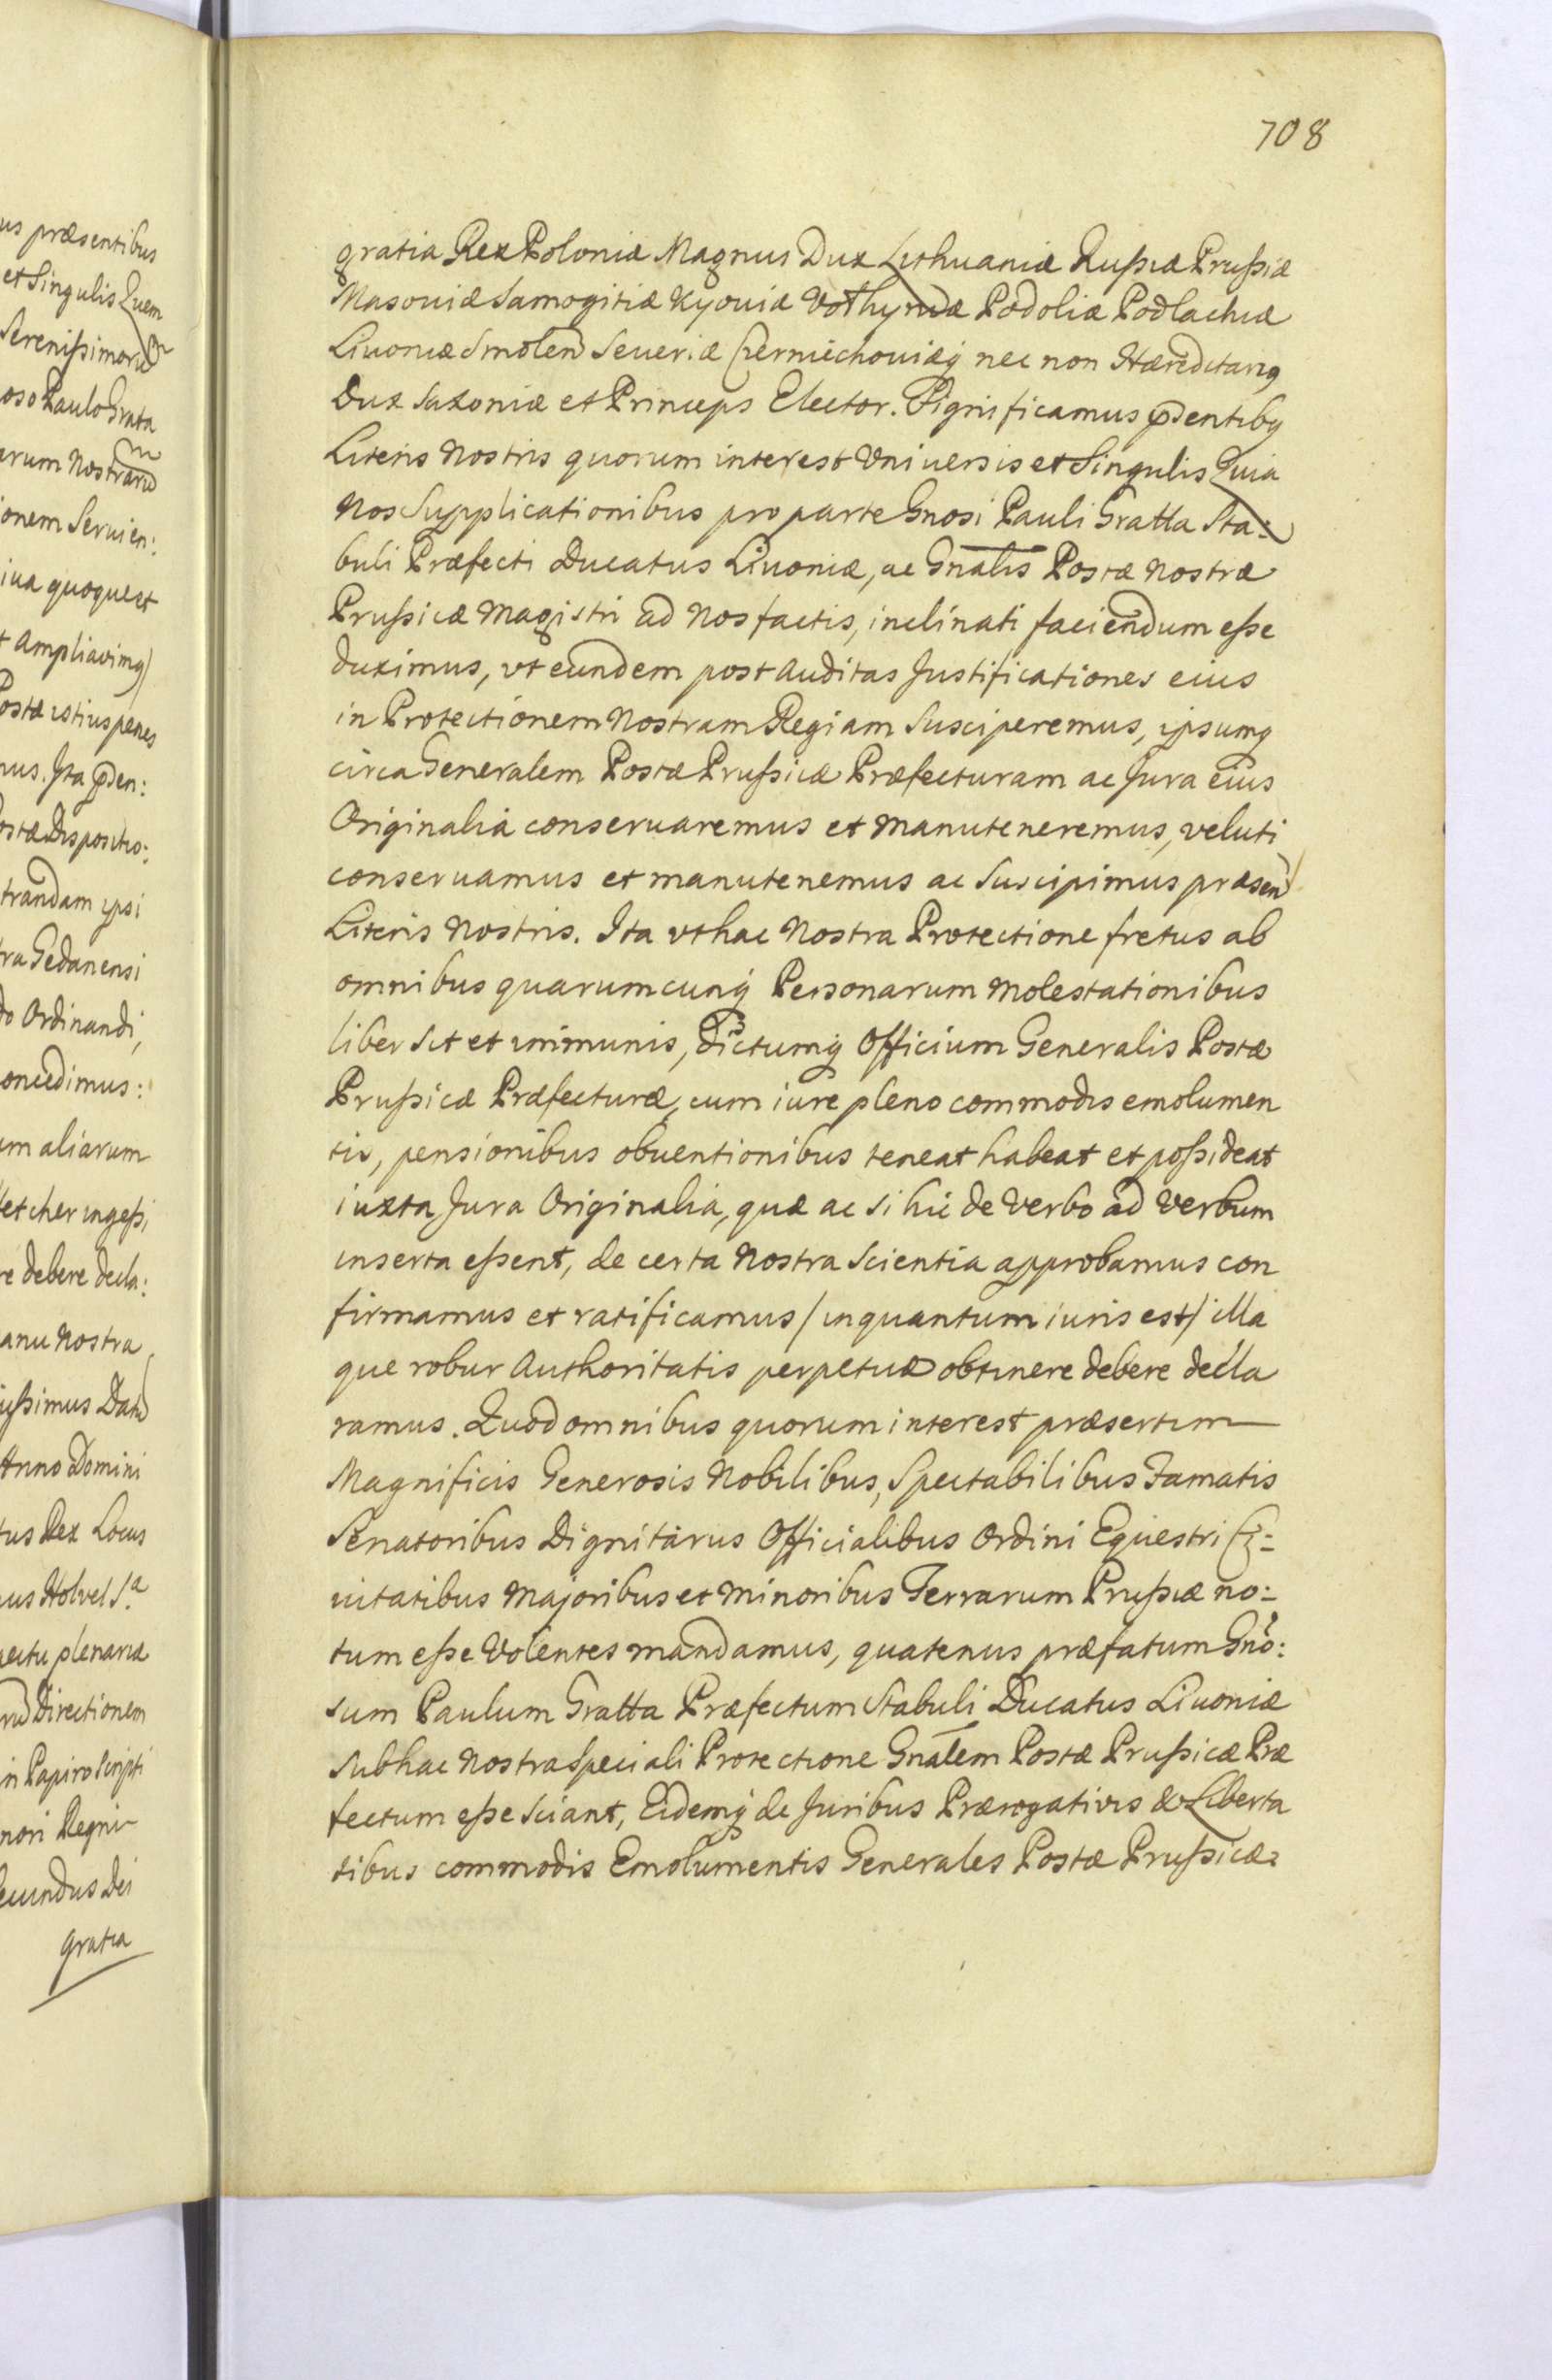 us præsentibus
et Singulis Quem
Serenißimorum
oso Paulo Grata
arum Nostraru
ionem Seruien:
iua quoque et
t Ampliavimq
ostæ istius penes
nus. Ita p̄den:
ostæ Dispositio:
trandam ipsi
tra Gedanensi
do Ordinandi,
oncedimus:
um aliarum
etcher ingeßi
re debere decla:
anu Nostra
ißimus Datu
Anno Domini
tus Rex Locus
us Holvel Sa
ectu plenaria
Directionem
in Papiro Scripti
nori Regni
ecundus Dei
gratia
708
gratia Rex Poloniæ Magnus Dux Lithuaniæ Rußiæ Prußiæ
Masouiæ Samogitiæ Kyouiæ Volhyniæ Podoliæ Podlachiæ
Liuoniæ Smolen Seueriæ Czerniechouiæq; nec non Hæreditariq
Dux Saxoniæ et Princeps Elector. Significamus p̄sentibq
Literis Nostris quorum interest Vniuersis et Singulis Quia
Nos Supplicationibus pro parte Gnosi Pauli Gratta Sta:
buli Præfecti Ducatus Liuoniæ, ac Gnālis Postæ Nostræ
Prußicæ Magistri ad Nos factis, inclinati faciendum eße
duximus, vt eundem post Auditas Justificationes eius
in Protectionem Nostram Regiam Susciperemus, ipsumq
circa Generalem Postæ Prußicæ Præfecturam ac Jura eius
Originalia conseruaremus et Manuteneremus, veluti
conseruamus et manutenemus ac Suscipimus præsen
Literis Nostris. Ita vt hac Nostra Protectione fretus ab
omnibus quarumcunq; Personarum Molestationibus
liber Sit et immunis, dictumq; Officium Generalis Postæ
Prußicæ Præfecturæ, cum iure pleno commodis emolumen
tis, pensionibus obuentionibus teneat habeat et poßideat
iuxta Jura Originalia, quæ ac si hic de Verbo ad Verbum
inserta eßent, de certa Nostra Scientia approbamus con
firmamus et ratificamus / inquantum iuris est / illa
que robur Authoritatis perpetuæ obtinere debere decla
ramus. Quod omnibus quorum interest præsertim
Magnificis Generosis Nobilibus, Spectabilibus Famatis
Senatoribus Dignitarus Officialibus Ordini Equestri Ci=
uitatibus Majoribus et Minoribus Terrarum Prußiæ no:
tum eße Volentes mandamus, quatenus præfatum Gnō:
sum Paulum Gratta Præfectum Stabuli Ducatus Liuoniæ
Sub hac Nostra Speciali Protectione Gnālem Postæ Prußicæ Præ
fectum eße Sciant, Eidemq; de Juribus Prærogativis & Liberta
tibus commodis Emolumentis Generales Postæ Prußicæ